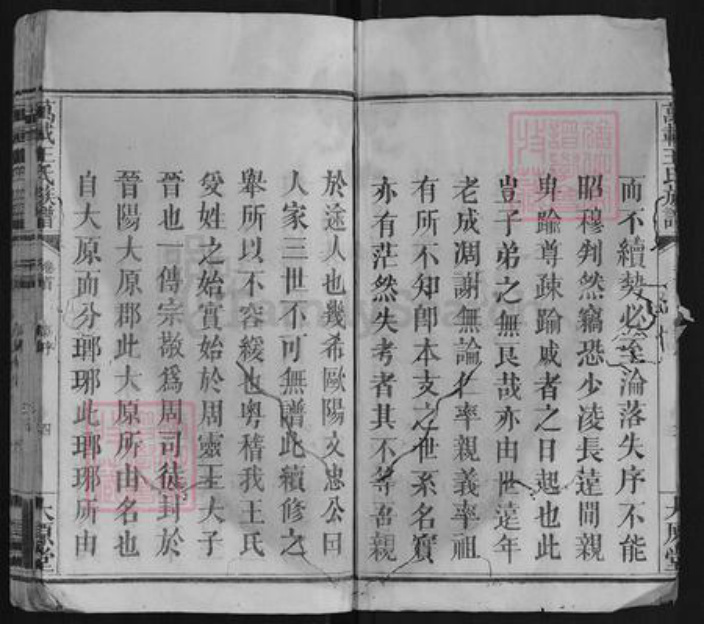 萬載王氏族譜
大原堂
而不續勢必至淪落失序不能
昭穆判然竊恐少凌長薳間親
卑踰尊疎踰戚者之日起也此
豈子弟之無良哉亦由世遠年
老成凋謝無論仁率親義率祖
有所不知卽本支之世系名實
亦有茫然失考者其不等吾親
於途人也幾希歐陽文忠公曰
人家三世不可無譜此續修之
舉所以不容緩也粤稽我王氏
受姓之始實始於周靈王大子
晉也一傳宗敬爲周司徒封於
晉陽大原郡此大原所由名也
自大原而分瑯琊此瑯琊所由
萬載王氏族譜
卷首
四
大原堂